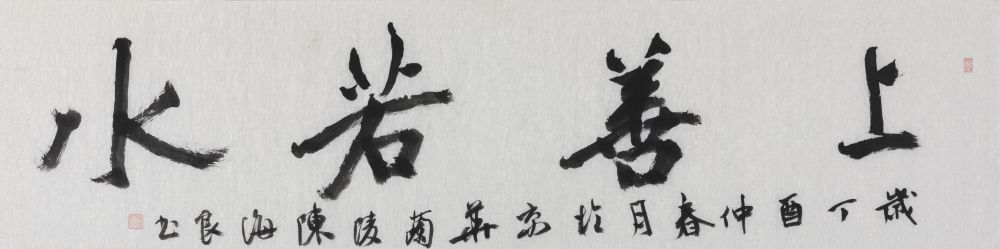 上善若水
歲丁酉仲春月於京華蘭陵陳海良书